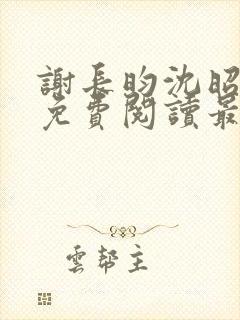 謝長昀沈昭
免費閱讀最
雲幫主